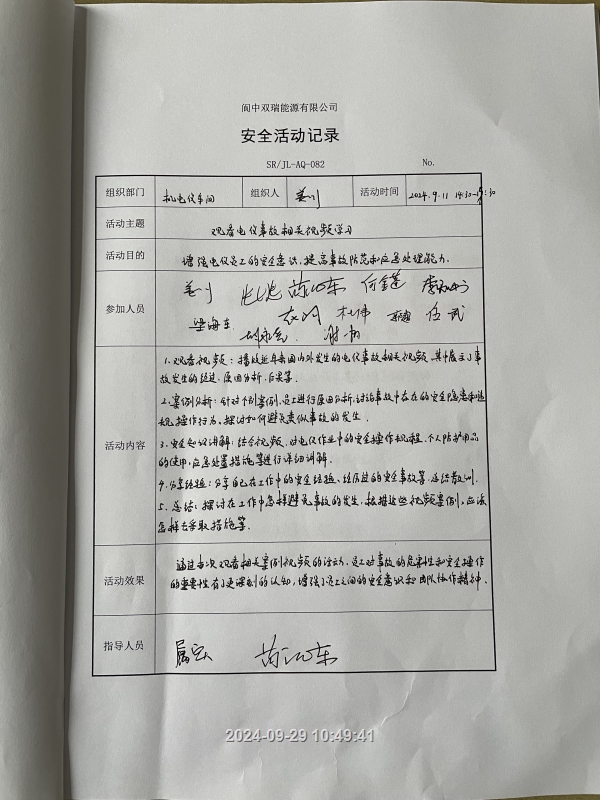 阆中双瑞能源有限公司
安全活动记录
SR/JL-AQ-082 No.
组织部门 机电仪车间 组织人 活动时间 2024.9.11 14:30-15:30
活动主题 观看电仪事故相关视频学习
活动目的 增强电仪员工的安全意识,提高事故防范和应急处理能力.
参加人员
梁海主 杜伟 伍武
活动内容
1.观看视频:播放近年来国内外发生的电仪事故相关视频,其中展示了事
故发生的经过、原因分析、后果等.
2.案例分析:针对个别案例,员工进行原因分析,讨论事故中存在的安全隐患和违
规操作行为,探讨如何避免类似事故的发生.
3.安全知识讲解:结合视频,对电仪作业中的安全操作规程、个人防护用品
的使用,应急处置措施等进行详细讲解.
4.分享经验:分享自己在工作中的安全经验、经历过的安全事故等,总结教训.
5.总结:探讨在工作中怎样避免事故的发生,根据这些视频案例,应该
怎样去采取措施等.
活动效果
通过本次观看相关案例视频的活动,员工对事故的危害性和安全操作
的重要性有了更深刻的认知,增强了员工之间的安全意识和团队协作精神.
指导人员
2024-09-29 10:49:41